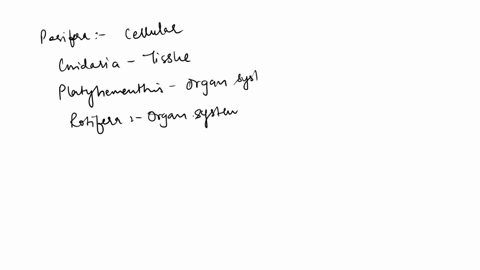 Porifera :- Cellular
Cnidaria - Tissue
Platyhementhis - organ syst
Rotifera :- Organ system